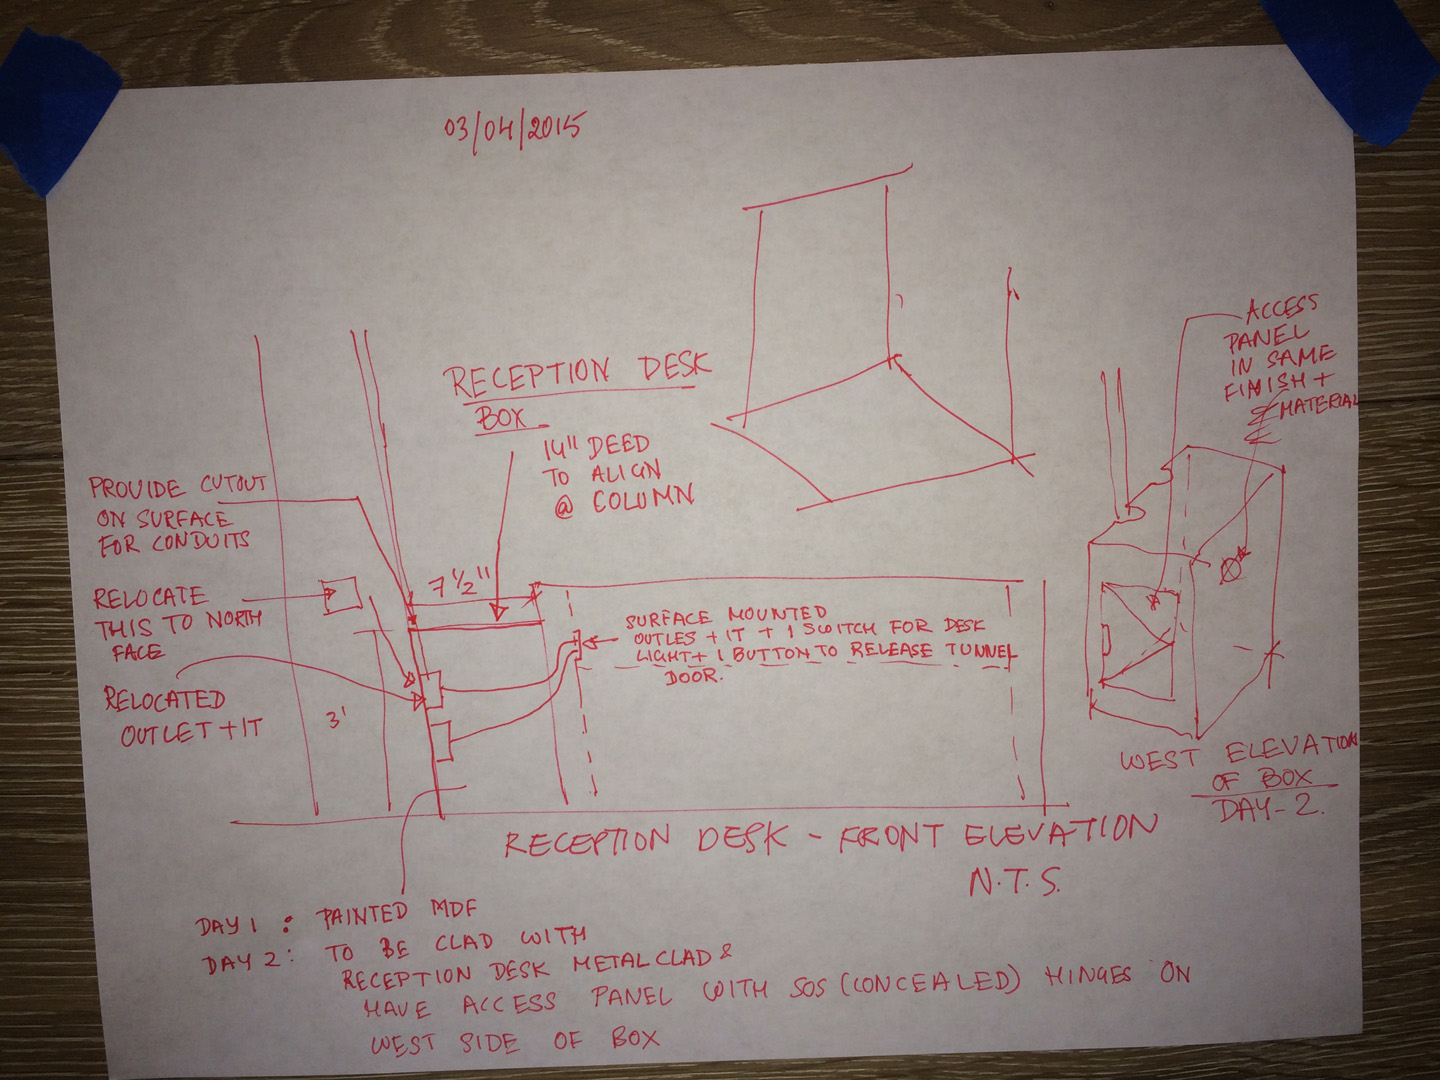 03/04/2015
RECEPTION DESK
BOX
14" DEED
TO ALIGN
@ COLUMN
ACCESS
PANEL
IN SAME
FINISH +
MATERIAL
PROVIDE CUTOUT
ON SURFACE
FOR CONDUITS
7 1/2"
RELOCATE
THIS TO NORTH
FACE
SURFACE MOUNTED
OUTLES + IT + 1 SWITCH FOR DESK
LIGHT + 1 BUTTON TO RELEASE TUNNEL
DOOR.
RELOCATED
OUTLET + IT
3'
WEST ELEVATION
OF BOX
DAY-2.
RECEPTION DESK - FRONT ELEVATION
N.T.S.
DAY 1 : PAINTED MDF
DAY 2 : TO BE CLAD WITH
RECEPTION DESK METAL CLAD &
HAVE ACCESS PANEL WITH SOS (CONCEALED) HINGES ON
WEST SIDE OF BOX